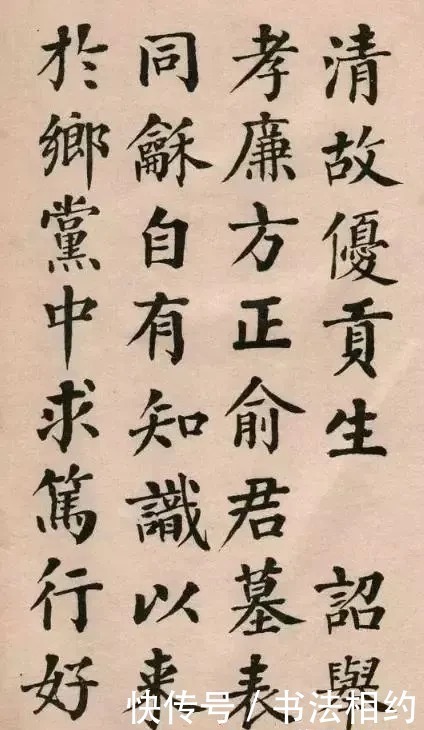 清故優貢生 詔舉
孝廉方正俞君墓表
同龢自有知識以来
於鄉黨中求篤行好
快传号 / 书法相约